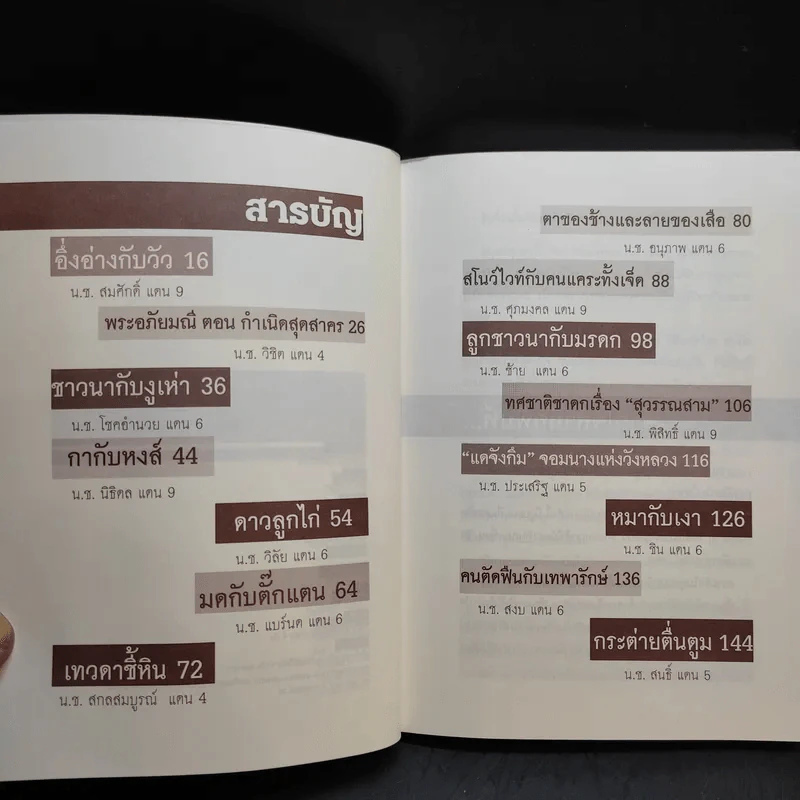 สารบัญ
อึ่งอ่างกับวัว 16
น.ช. สมศักดิ์ แดน 9
พระอภัยมณี ตอน กำเนิดสุดสาคร 26
น.ช. วิชิต แดน 4
ชาวนากับงูเห่า 36
น.ช. โชคอำนวย แดน 6
กากับหงส์ 44
น.ช. นิธิดล แดน 9
ดาวลูกไก่ 54
น.ช. วิลัย แดน 6
มดกับตั๊กแตน 64
น.ช. แบร์นด แดน 6
เทวดาชี้หิน 72
น.ช. สกลสมบูรณ์ แดน 4
ตาของช้างและลายของเสือ 80
น.ช. อนุภาพ แดน 6
สโนว์ไวท์กับคนแคระทั้งเจ็ด 88
น.ช. ศุภมงคล แดน 9
ลูกชาวนากับมรดก 98
น.ช. ช้าย แดน 6
ทศชาติชาดกเรื่อง “สุวรรณสาม” 106
น.ช. พิสิทธิ์ แดน 9
“แดจังกึม” จอมนางแห่งวังหลวง 116
น.ช. ประเสริฐ แดน 5
หมากับเงา 126
น.ช. ชิน แดน 6
คนตัดฟืนกับเทพารักษ์ 136
น.ช. สงบ แดน 6
กระต่ายตื่นตูม 144
น.ช. สนธิ์ แดน 5